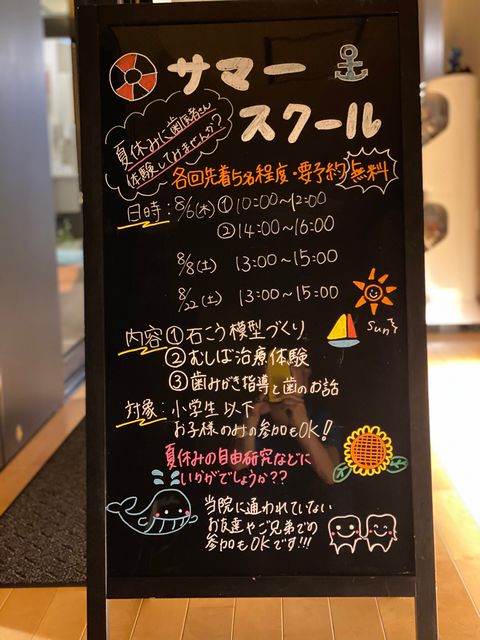 サマー
スクール
夏休みに歯医者さん
体験してみませんか?
各回先着5名程度・要予約 無料
日時: 8/6(木) ① 10:00～12:00
② 14:00～16:00
8/8(土) 13:00～15:00
8/22(土) 13:00～15:00
内容 ① 石こう模型づくり
② むしば治療体験
③ 歯みがき指導と歯のお話
対象: 小学生以下
お子様のみの参加もOK!
夏休みの自由研究などに
いかがでしょうか??
当院に通われていない
お友達やご兄弟での
参加もOKです!!!